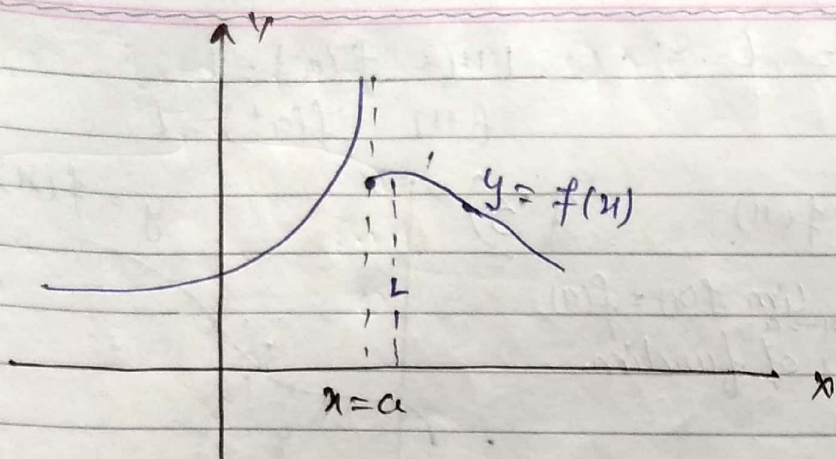 Y
y = f(x)
L
x = a
X